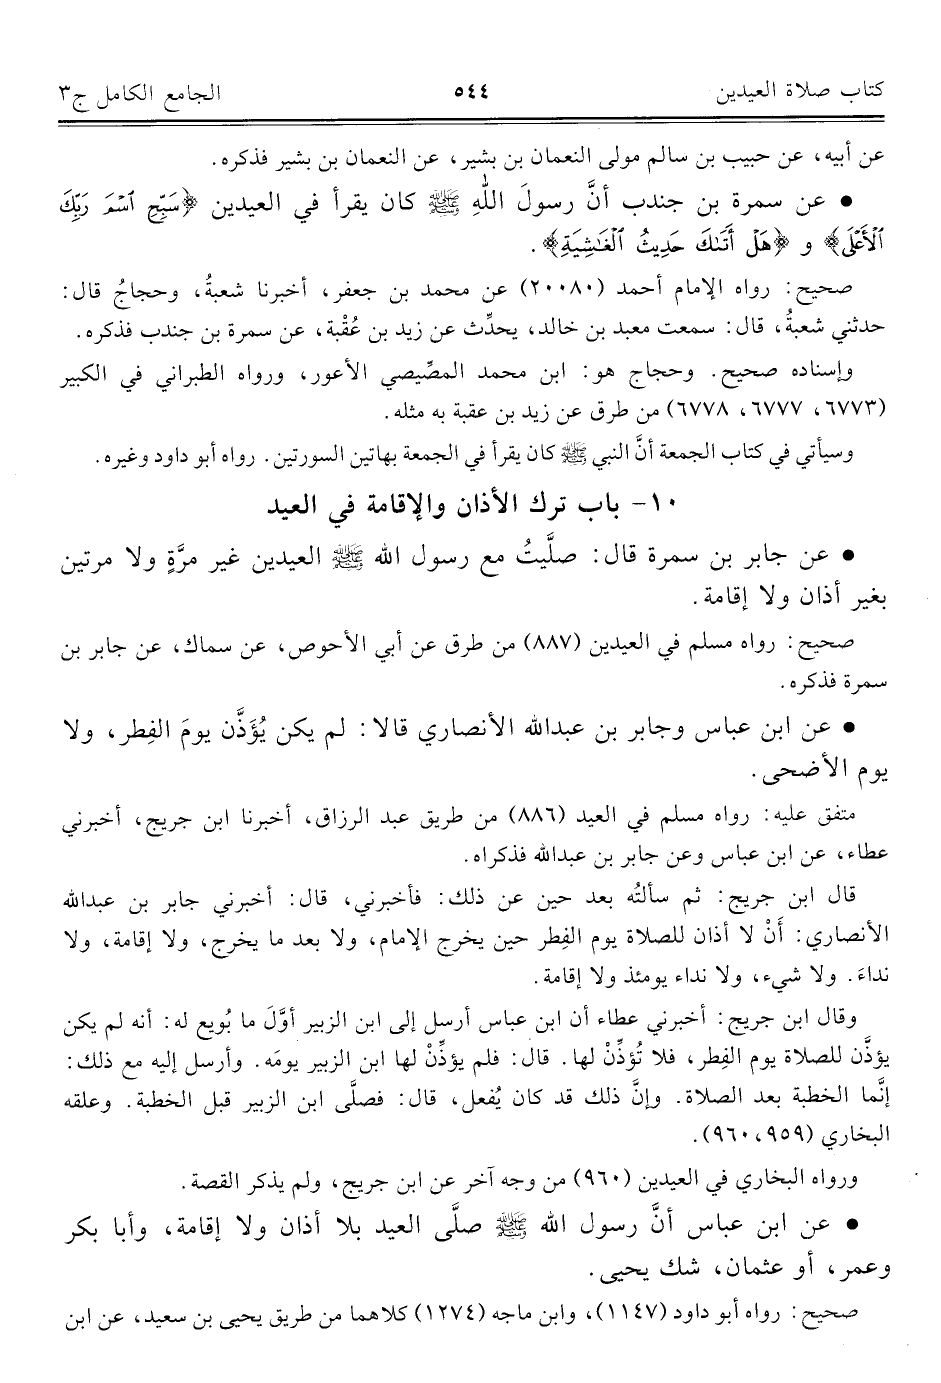 كتاب صلاة العيدين ٥٤٤ الجامع الكامل ج٣
عن أبيه، عن حبيب بن سالم مولى النعمان بن بشير، عن النعمان بن بشير فذكره.
• عن سمرة بن جندب أنَّ رسولَ اللَّهِ ﷺ كان يقرأ في العيدين ﴿سَبِّحِ ٱسْمَ رَبِّكَ
ٱلْأَعْلَى﴾ و ﴿هَلْ أَتَىٰكَ حَدِيثُ ٱلْغَٰشِيَةِ﴾.
صحيح: رواه الإمام أحمد (٢٠٠٨٠) عن محمد بن جعفر، أخبرنا شعبةُ، وحجاجُ قال:
حدثني شعبةُ، قال: سمعت معبد بن خالد، يحدِّث عن زيد بن عُقْبة، عن سمرة بن جندب فذكره.
وإسناده صحيح. وحجاج هو: ابن محمد المصِّيصي الأعور، ورواه الطبراني في الكبير
(٦٧٧٣، ٦٧٧٧، ٦٧٧٨) من طرق عن زيد بن عقبة به مثله.
وسيأتي في كتاب الجمعة أنَّ النبي ﷺ كان يقرأ في الجمعة بهاتين السورتين. رواه أبو داود وغيره.
١٠- باب ترك الأذان والإقامة في العيد
• عن جابر بن سمرة قال: صلَّيتُ مع رسول الله ﷺ العيدين غير مرَّةٍ ولا مرتين
بغير أذان ولا إقامة.
صحيح: رواه مسلم في العيدين (٨٨٧) من طرق عن أبي الأحوص، عن سماك، عن جابر بن
سمرة فذكره.
• عن ابن عباس وجابر بن عبدالله الأنصاري قالا: لم يكن يُؤَذَّن يومَ الفِطر، ولا
يوم الأضحى.
متفق عليه: رواه مسلم في العيد (٨٨٦) من طريق عبد الرزاق، أخبرنا ابن جريج، أخبرني
عطاء، عن ابن عباس وعن جابر بن عبدالله فذكراه.
قال ابن جريج: ثم سألتُه بعد حين عن ذلك: فأخبرني، قال: أخبرني جابر بن عبدالله
الأنصاري: أَنْ لا أذان للصلاة يوم الفطر حين يخرج الإمام، ولا بعد ما يخرج، ولا إقامة، ولا
نداءَ. ولا شيء، ولا نداء يومئذ ولا إقامة.
وقال ابن جريج: أخبرني عطاء أن ابن عباس أرسل إلى ابن الزبير أوَّلَ ما بُويع له: أنه لم يكن
يؤذَّن للصلاة يوم الفِطر، فلا تُؤذِّنْ لها. قال: فلم يؤذِّنْ لها ابن الزبير يومَه. وأرسل إليه مع ذلك:
إنَّما الخطبة بعد الصلاة. وإنَّ ذلك قد كان يُفعل، قال: فصلَّى ابن الزبير قبل الخطبة. وعلقه
البخاري (٩٥٩، ٩٦٠).
ورواه البخاري في العيدين (٩٦٠) من وجه آخر عن ابن جريج، ولم يذكر القصة.
• عن ابن عباس أنَّ رسول الله ﷺ صلَّى العيد بلا أذان ولا إقامة، وأبا بكر
وعمر، أو عثمان، شك يحيى.
صحيح: رواه أبو داود (١١٤٧)، وابن ماجه (١٢٧٤) كلاهما من طريق يحيى بن سعيد، عن ابن